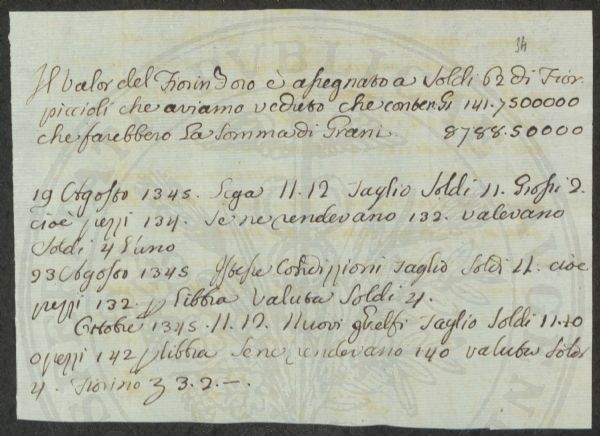 34
Il Valor del Fiorin d'oro è assegnato a Soldi 62 di Fior.
piccioli che aviamo veduto che contengi 141.7500000
che farebbero La Somma di Grani 8788.50000
19 Agosto 1345. Lega 11.12 Taglio Soldi 11. Grossi 2.
cioè pezzi 134. Se ne rendevano 132. valevano
Soldi 4 l'uno
23 Agosto 1345 Condizzioni Taglio Soldi 11. cioe
pezzi 132. p Libbra Valuta Soldi 4.
Ottobre 1345. 11.12. Nuovi guelfi Taglio Soldi 11.10
pezzi 142 p libbra Se ne rendevano 140 valuta Soldi
4. Fiorino 3.2.—.